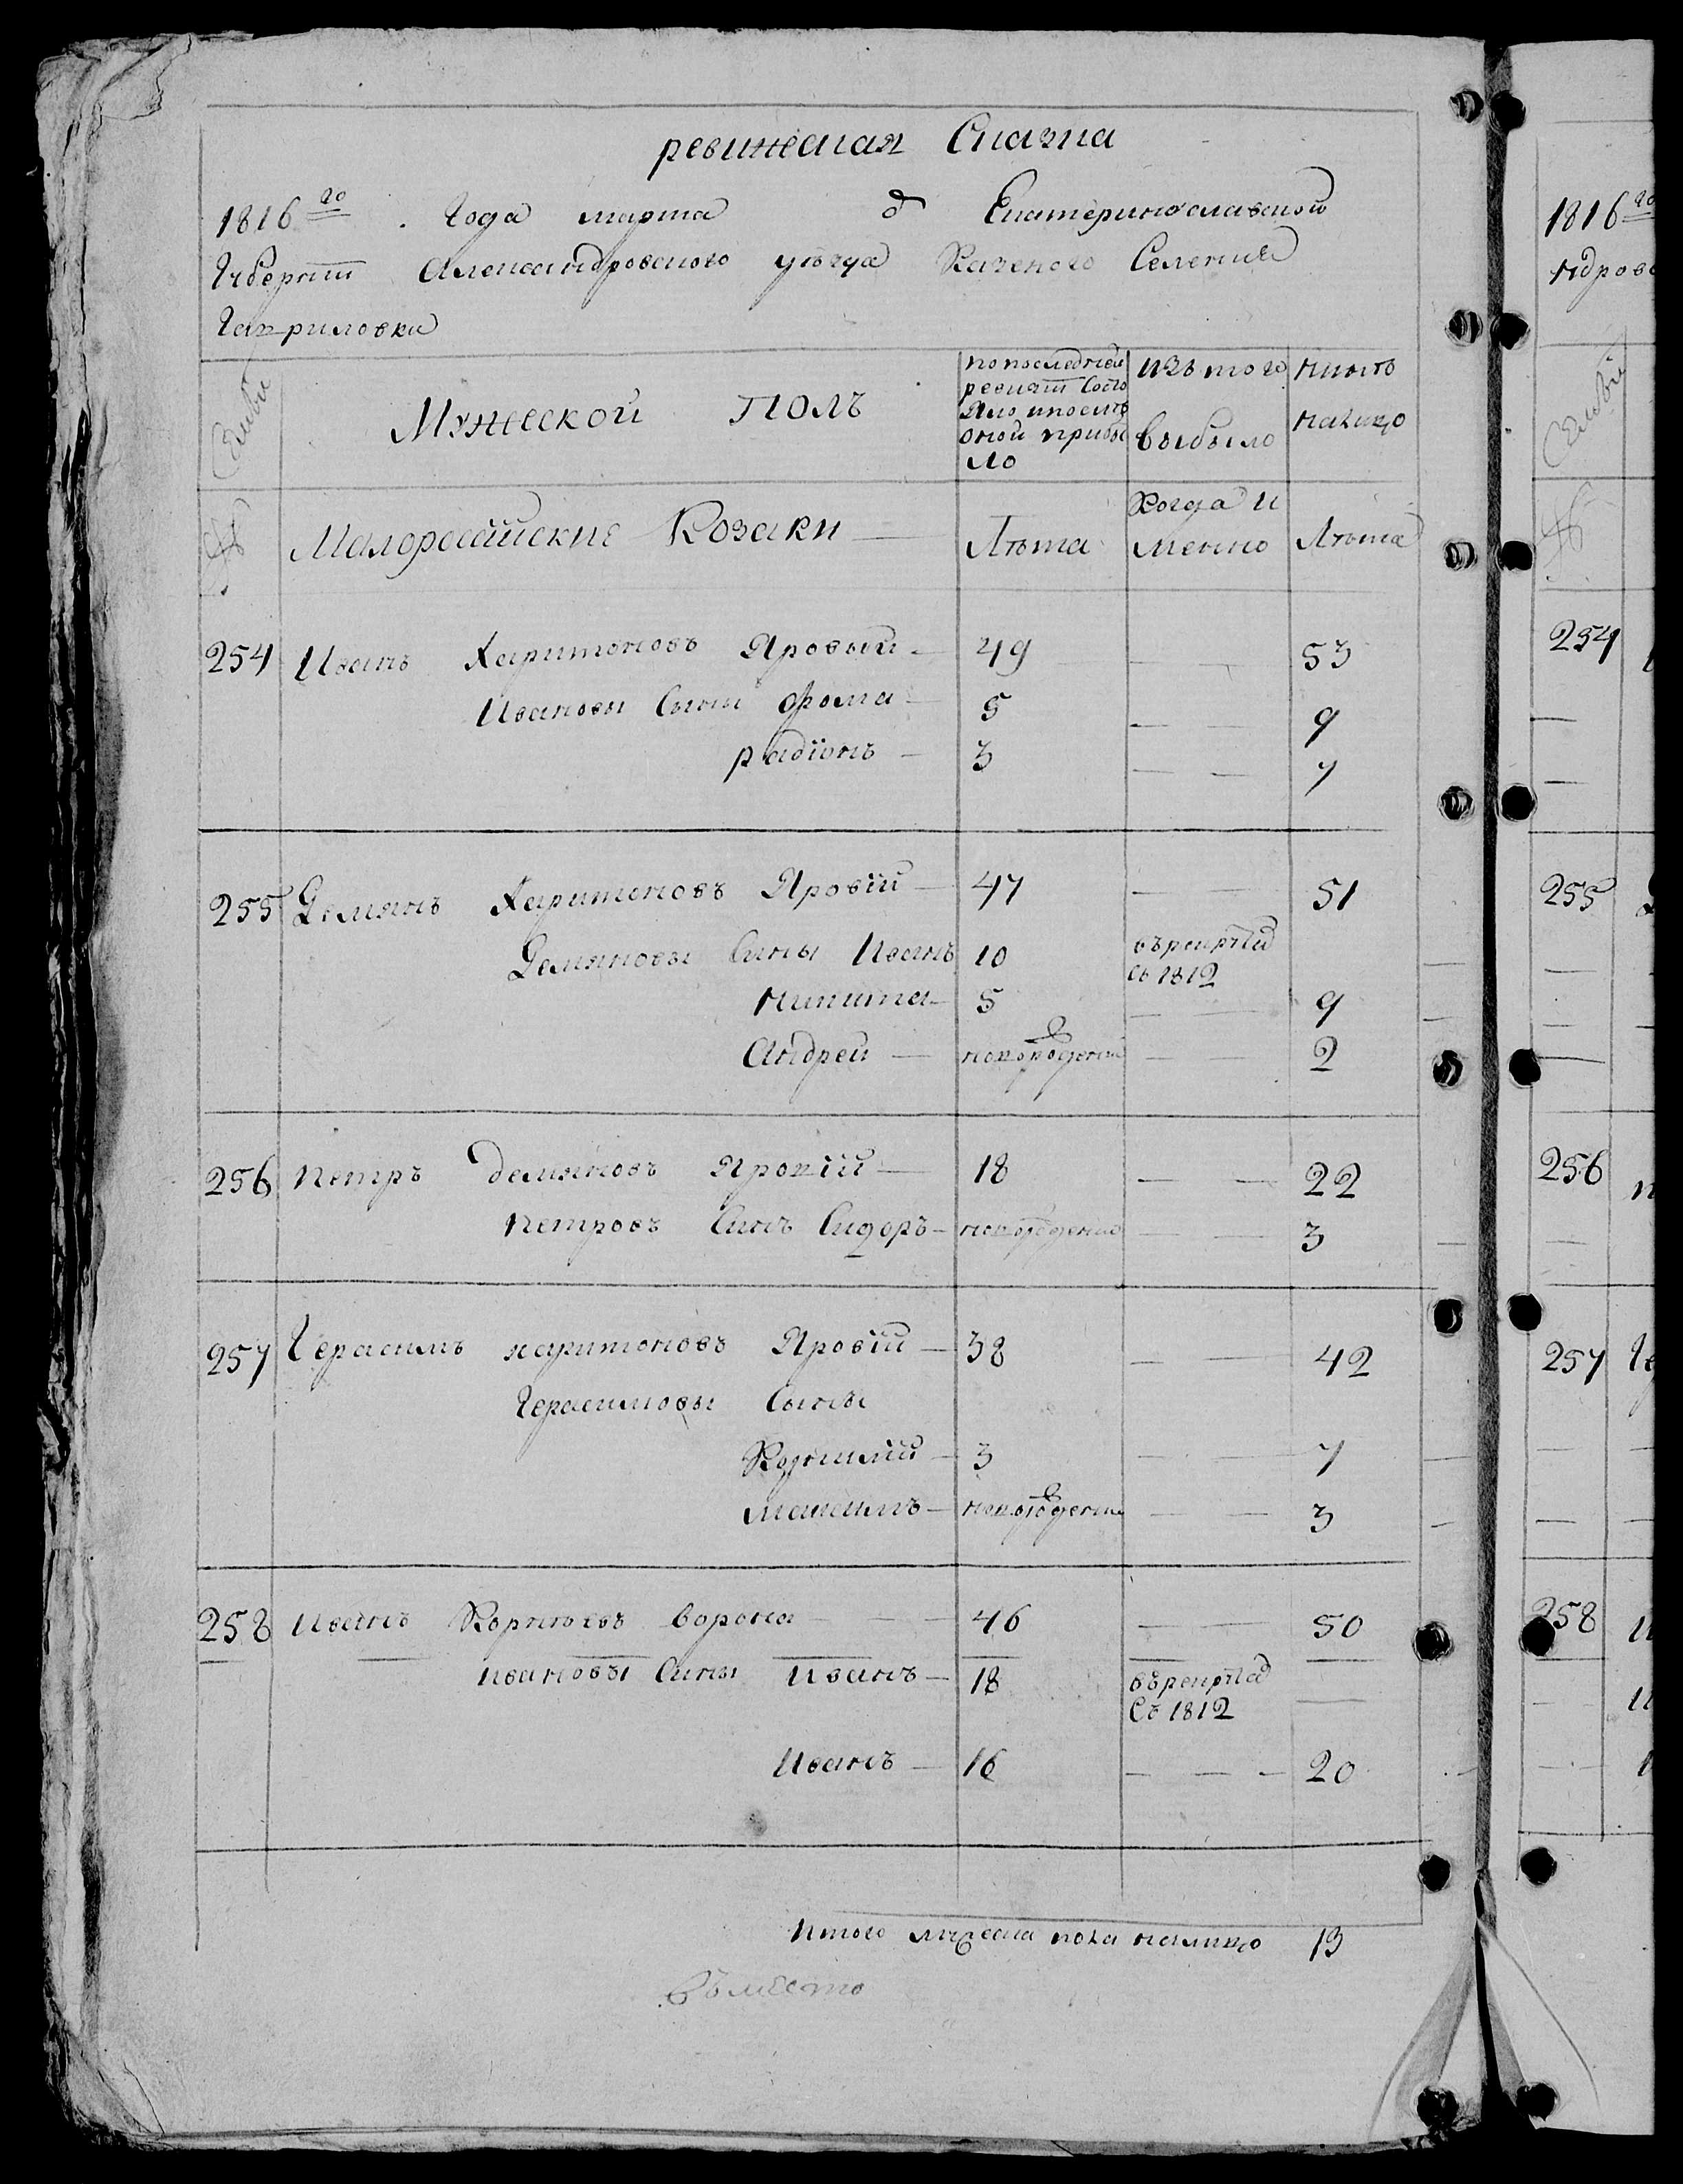 ревижская Сказка
1816го Года марта д Екатеринославской
Губернїи Александровского уѣзда Казеного Селения
Гавриловки
Семьи
Мужеской полъ
по последней ревизїи состояло и после оной прибыло
изъ того выбыло
ныне налицо
№
Малоросийские Козаки
Лѣта
Когда именно
Лѣта
254 Иванъ Харитоновъ Яровый 49 — — 53
Ивановы Сыны Фома 5 — 9
радїонъ 3 — — 7
255 Демянъ Харитоновъ Яровїй 47 — — 51
Демяновы Сины Иванъ 10 въ рекруты съ 1812
Никита 5 — — 9
Андрей — новорожденый — — 2
256 Петръ Демяновъ Яровїй — 18 — — 22
Петровъ Синъ Сидоръ — новорожденый — — 3
257 Герасимъ харитоновъ Яровїй — 38 — — 42
Герасимовы Сыны
Корнилїй — 3 — — 7
Максимъ — новорожденый — — 3
258 Иванъ Корнїевъ Ворона — — 46 — — 50
Ивановы Сины Иванъ — 18 въ рекруты Съ 1812 —
Иванъ — 16 — — — 20
Итого мужеска пола налицо 13
Вместо
1816го
ндровс
Семьи
№
254
255
256
257 Ге
258